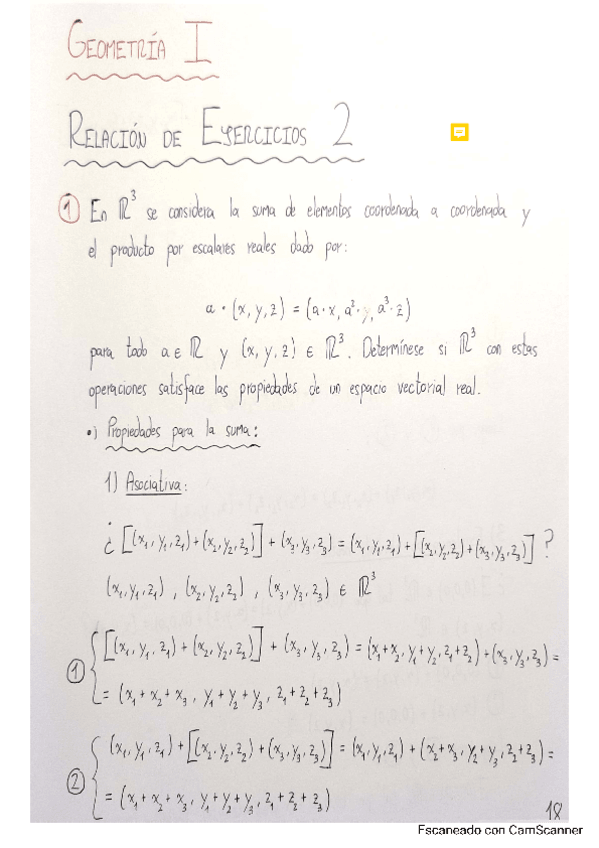 GEOMETRÍA I
RELACIÓN DE EJERCICIOS 2
① En ℝ³ se considera la suma de elementos coordenada a coordenada y
el producto por escalares reales dado por:
a · (x, y, z) = (a · x, a² · y, a³ · z)
para todo a ∈ ℝ y (x, y, z) ∈ ℝ³. Determínese si ℝ³ con estas
operaciones satisface las propiedades de un espacio vectorial real.
•) Propiedades para la suma:
1) Asociativa:
¿ [(x₁, y₁, z₁) + (x₂, y₂, z₂)] + (x₃, y₃, z₃) = (x₁, y₁, z₁) + [(x₂, y₂, z₂) + (x₃, y₃, z₃)] ?
(x₁, y₁, z₁) , (x₂, y₂, z₂) , (x₃, y₃, z₃) ∈ ℝ³
① { [(x₁, y₁, z₁) + (x₂, y₂, z₂)] + (x₃, y₃, z₃) = (x₁ + x₂, y₁ + y₂, z₁ + z₂) + (x₃, y₃, z₃) =
= (x₁ + x₂ + x₃, y₁ + y₂ + y₃, z₁ + z₂ + z₃)
② { (x₁, y₁, z₁) + [(x₂, y₂, z₂) + (x₃, y₃, z₃)] = (x₁, y₁, z₁) + (x₂ + x₃, y₂ + y₃, z₂ + z₃) =
= (x₁ + x₂ + x₃, y₁ + y₂ + y₃, z₁ + z₂ + z₃)
18
Escaneado con CamScanner